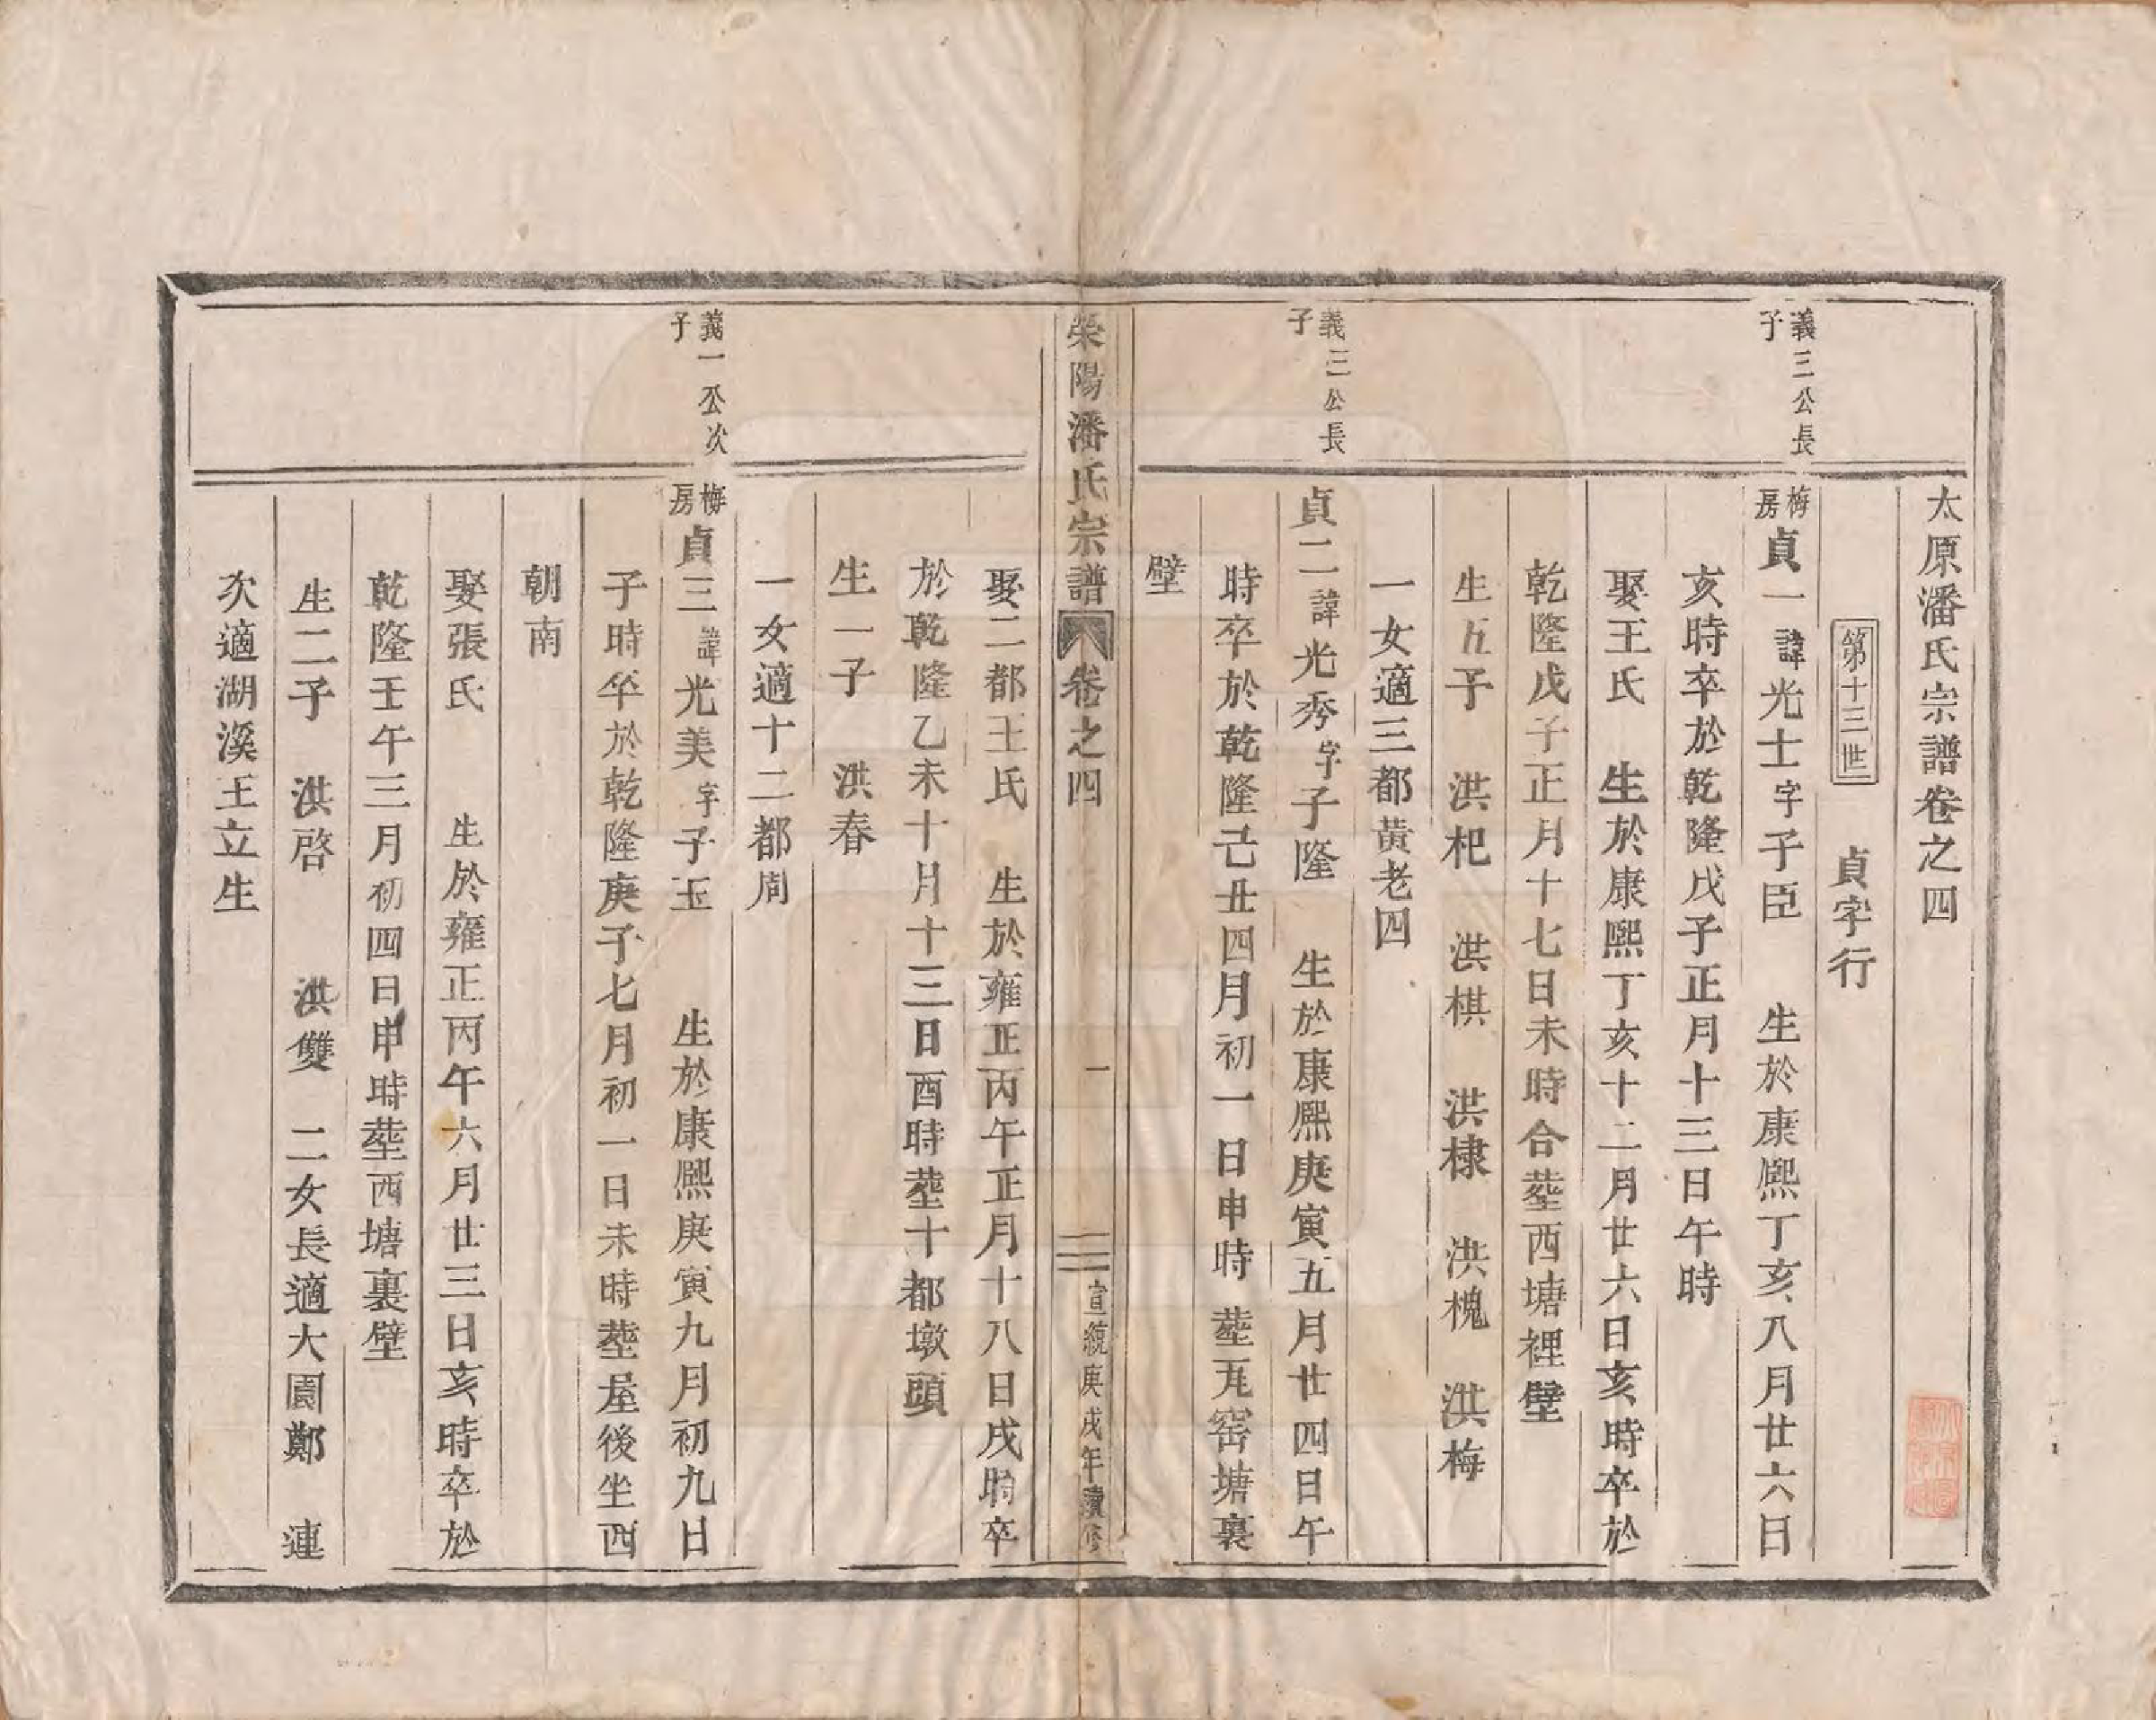 太原潘氏宗譜卷之四
第十三世 貞字行
義三公長子
梅房 貞一 諱光士 字子臣 生於康熙丁亥八月廿六日
亥時卒於乾隆戊子正月十三日午時
娶王氏 生於康熙丁亥十二月廿六日亥時卒於
乾隆戊子正月十七日未時合塟西塘裡壁
生五子 洪杞 洪棋 洪棣 洪槐 洪梅
一女適三都黃老四
義三公長子
貞二 諱光秀 字子隆 生於康熙庚寅五月廿四日午
時卒於乾隆己丑四月初一日申時塟瓦窑塘裏
壁
滎陽潘氏宗譜 卷之四 一 宣統庚戌年續修
娶二都王氏 生於雍正丙午正月十八日戌時卒
於乾隆乙未十月十三日酉時塟十都墩頭
生一子 洪春
一女適十二都周
義一公次子
梅房 貞三 諱光美 字子玉 生於康熙庚寅九月初九日
子時卒於乾隆庚子七月初一日未時塟屋後坐西
朝南
娶張氏 生於雍正丙午六月廿三日亥時卒於
乾隆壬午三月初四日申時塟西塘裏壁
生二子 洪啓 洪雙 二女長適大園鄭連
次適湖溪王立生